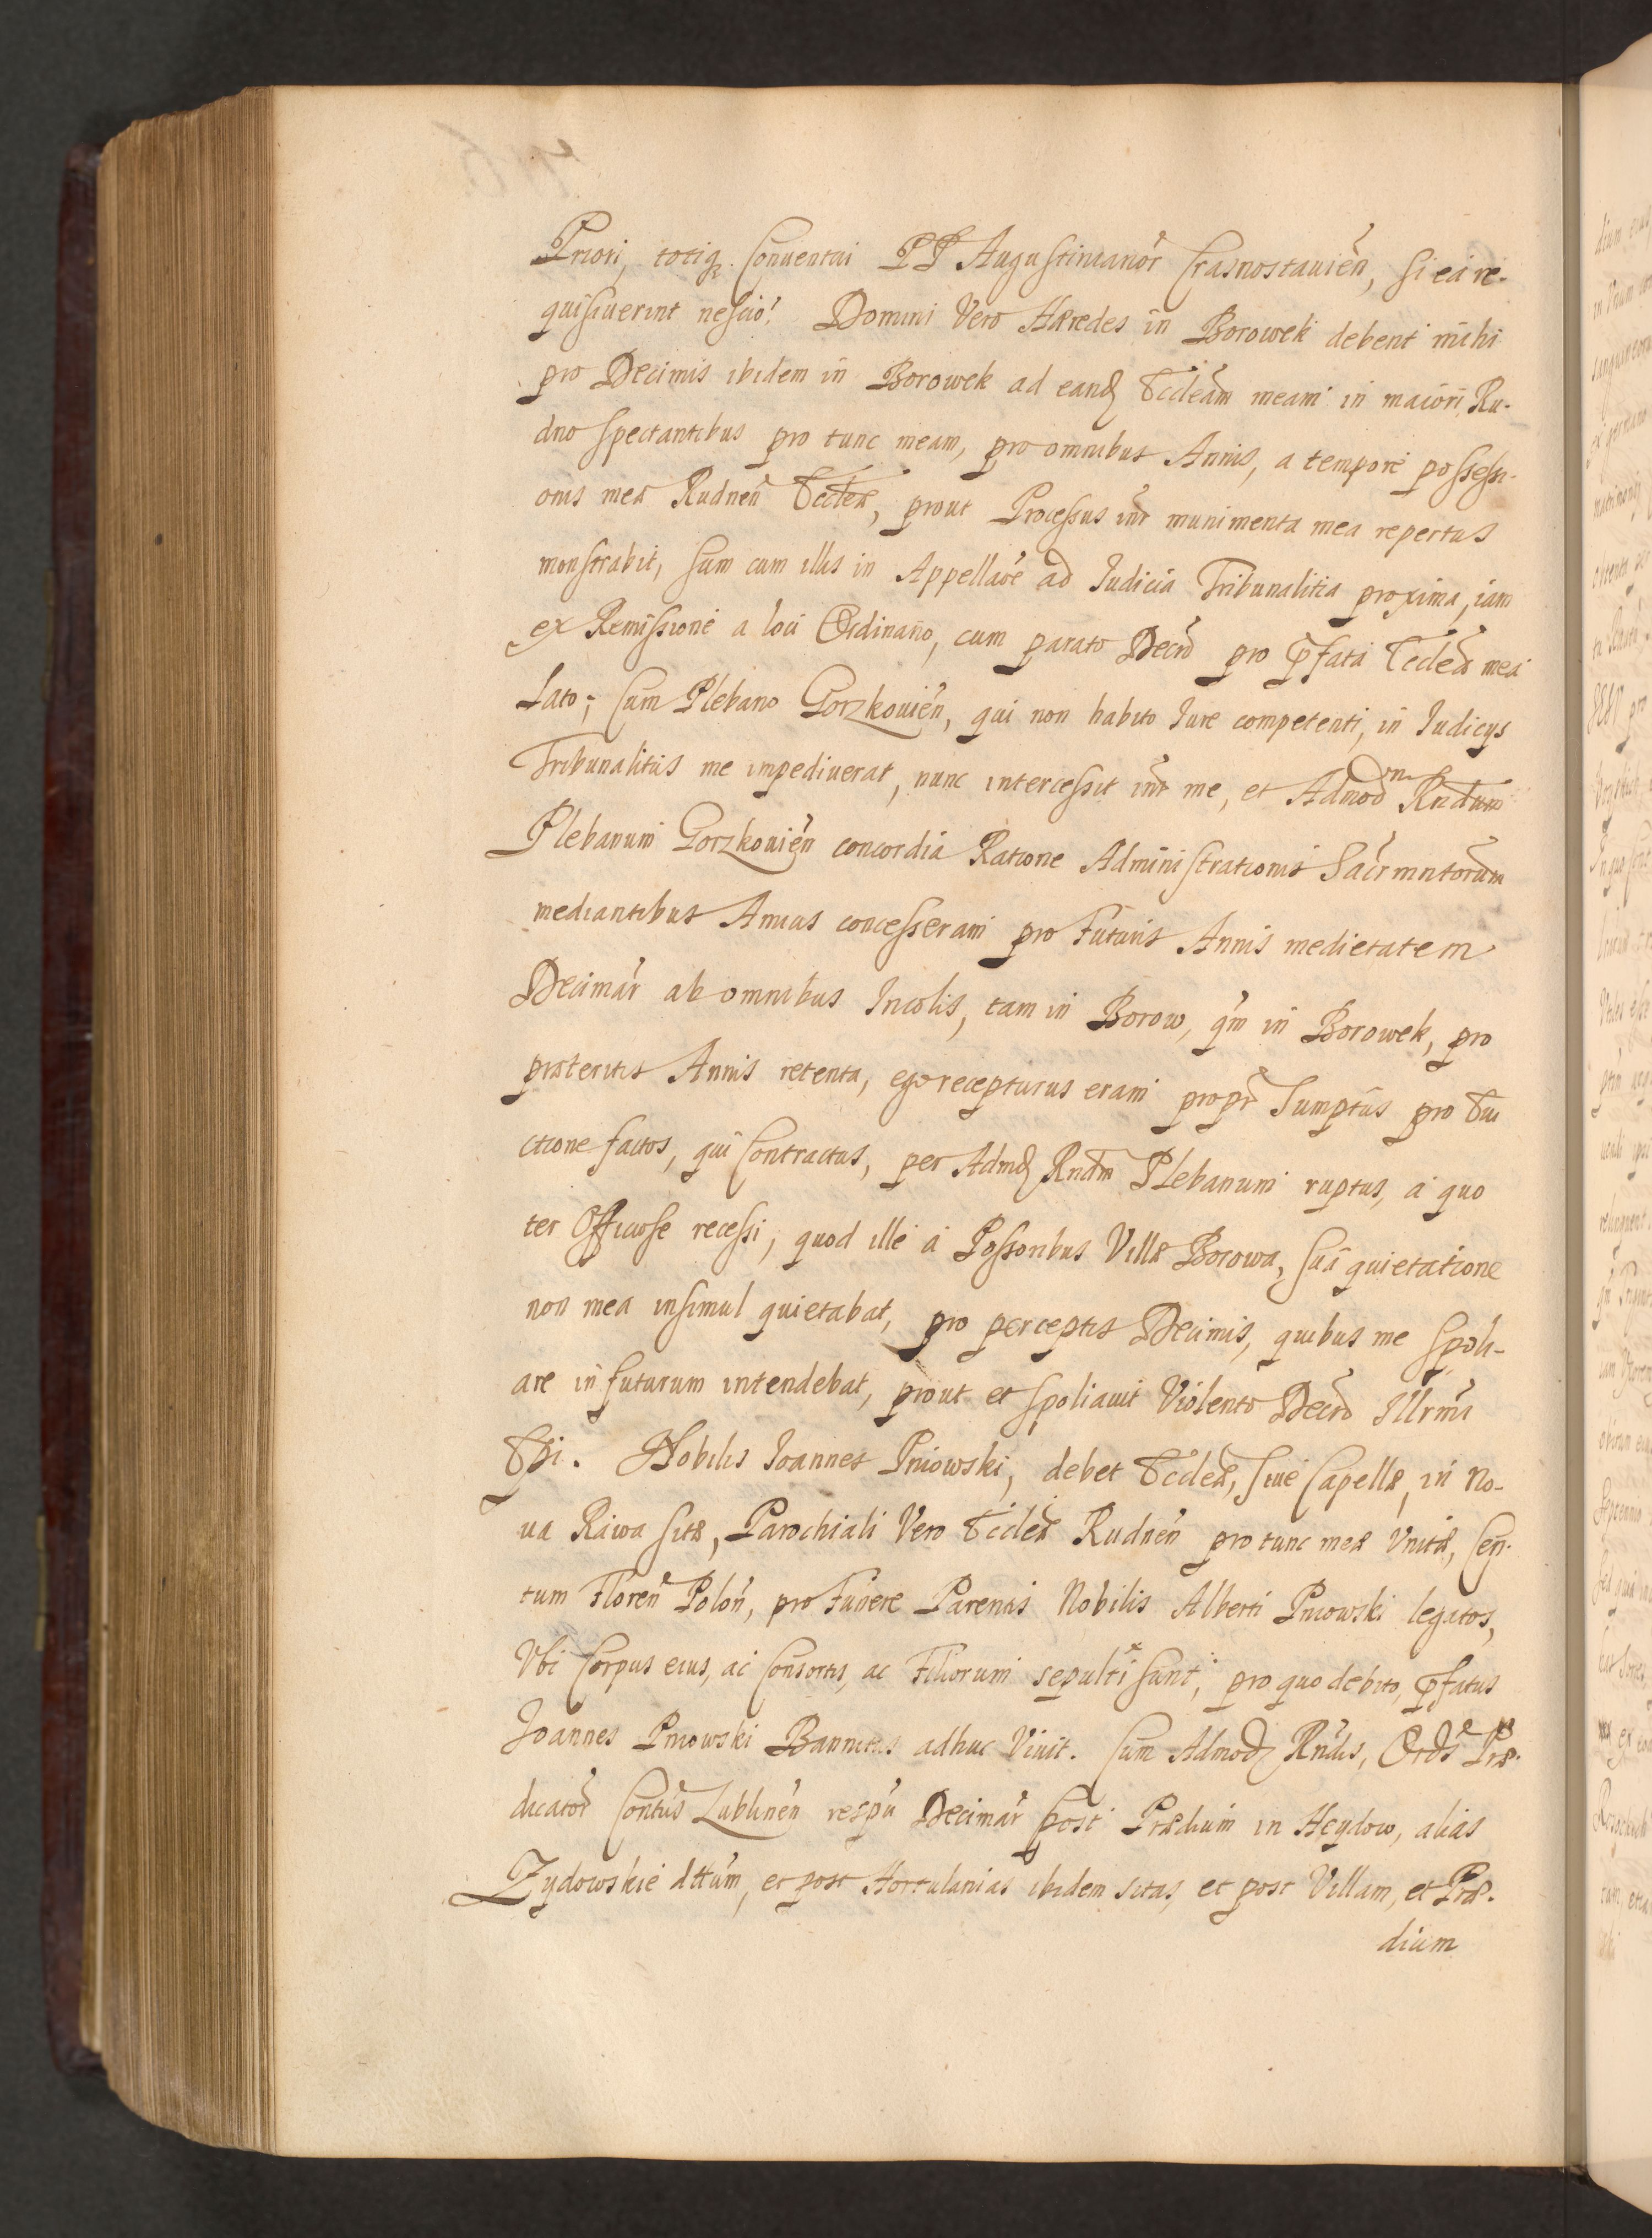 Priori, totiq₃ Conuentui PP Augustinianor̃ Crasnostauien̄, si ea re-
quisiuerint nescio! Domini Vero Hæredes in Borowek debent mihi
pro Decimis ibidem in Borowek ad eand₃ Eccleãm meam in maiori Ru-
dno spectantibus pro tunc meam, pro omnibus Annis, a tempore possessi-
onis meæ Rudnen̄ Eccleæ, prout Processus int̃ munimenta mea repertus
monstrabit, sum cum illis in Appellaõe ad Iudicia Tribunalitia proxima, iam
ex Remissione a loci Ordinario, cum parato Decr̃o pro p̃fata Ecclea mea
Lato; Cum Plebano Gorzkouien̄, qui non habito Iure competenti, in Iudicÿs
Tribunalitiis me impediuerat, nunc intercessit int̃ me, et Admod̃m Rndum
Plebanum Gorzkouien̄ concordia Ratione Administrationis Sacr̃mntorum
mediantibus Amicis concesseram pro Futuris Annis medietatem
Decimar̃ ab omnibus Incolis, tam in Borow, q̃m in Borowek, pro
præteritis Annis retenta, ego recepturus eram propt̃ Sumptus pro Eui
ctione factos, qui Contractus, per Admd₃ Rndm̃ Plebanum ruptus, a quo
ter Officiose recessi, quod ille a Possoribus Villæ Borowa, sua quietatione
non mea insimul quietabat, pro perceptis Decimis, quibus me spoli-
are in futurum intendebat, prout et spoliauit Violento Decr̃o Illr̃mi
Ep̃i. Nobilis Ioannes Pniowski, debet Eccleæ, siue Capellæ, in No-
ua Rawa sitæ, Parochiali Vero Eccleæ Rudnen̄ pro tunc meæ Vnitæ, Cen-
tum Floren̄ Polon̄, pro Funere Parentis Nobilis Alberti Pniowski legatos,
Vbi Corpus eius, ac Consortis, ac Filiorum sepulti sunt, pro quo debito, p̃fatus
Ioannes Pniowski Bannitus adhuc Viuit. Cum Admod₃ Rndis, Ord̃s Præ-
dicator̃ Cont̃us Lublinen̄ resp̃u Decimar̃ post Prædium in Heydow, alias
Zydowskie dttum, et post Hortulanias ibidem sitas, et post Villam, et Præ-
dium